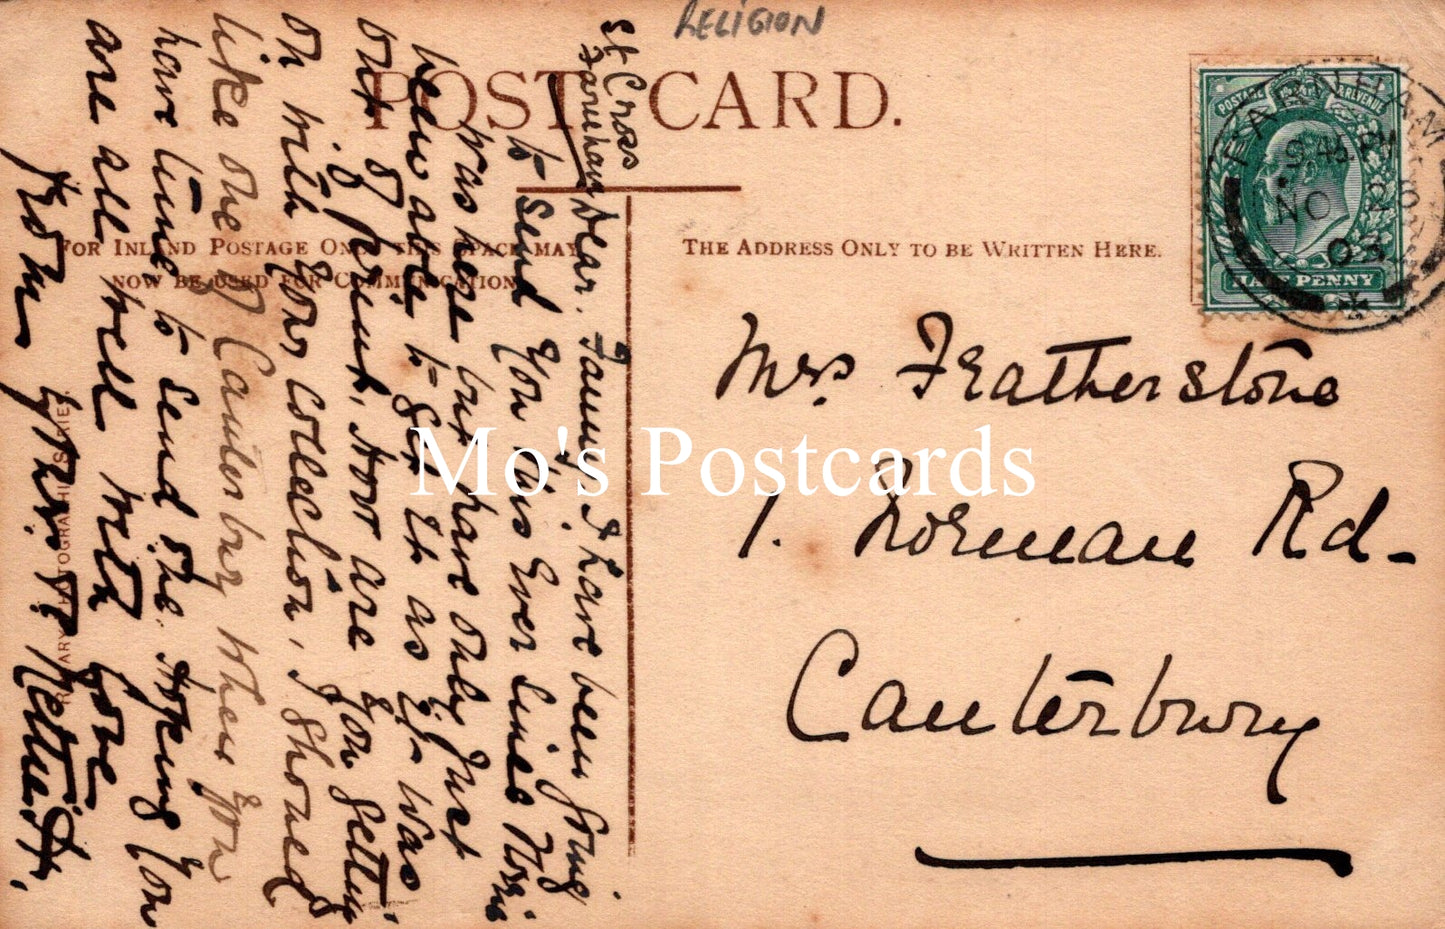 RELIGION
POST CARD.
FOR INLAND POSTAGE ONLY THIS SPACE MAY
NOW BE USED FOR COMMUNICATION
THE ADDRESS ONLY TO BE WRITTEN HERE.
POSTAGE REVENUE
HALF PENNY
FAREHAM
NO 28
Mrs Featherstone
1. Norman Rd.
Canterbury
St Cross
Fareham
Dear Fanny I have been going
to send you this ever since
was here but have only just
been able to get it as it was
out of print, How are you getting
on with your collection, I should
like one of Canterbury when you
have time to send one. Hoping you
are all well with love
from yrs Nettie H.
ROTARY PHOTOGRAPHIC SERIES
Mo's Postcards